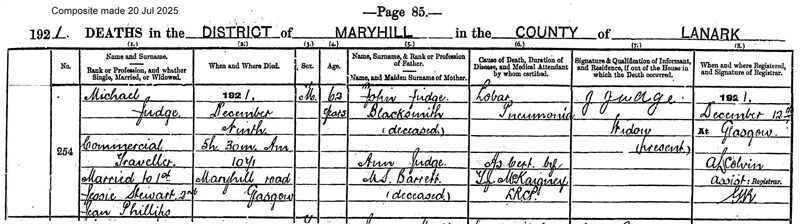 Composite made 20 Jul 2025
—Page 85.—
1921. DEATHS in the DISTRICT of MARYHILL in the COUNTY of LANARK
No.
(1.)
Name and Surname.
Rank or Profession, and whether Single, Married, or Widowed.
(2.)
When and Where Died.
(3.)
Sex.
(4.)
Age.
(5.)
Name, Surname, & Rank or Profession of Father.
Name, and Maiden Surname of Mother.
(6.)
Cause of Death, Duration of Disease, and Medical Attendant by whom certified.
(7.)
Signature & Qualification of Informant, and Residence, if out of the House in which the Death occurred.
(8.)
When and where Registered, and Signature of Registrar.
254
Michael
Judge
Commercial
Traveller.
Married to 1st
Jessie Stewart 2nd
Jean Phillips
1921.
December
Ninth
5h. 30m. A.m.
1041
Maryhill road
Glasgow
M.
62
years
John Judge.
Blacksmith
(deceased)
Ann Judge.
M.S. Barrett.
(deceased)
Lobar
Pneumonia
As Cert. by
McKaigney
L.R.C.P.
J Judge.
Widow
(present)
1921.
December 12th
At Glasgow.
Colvin
assist: Registrar.